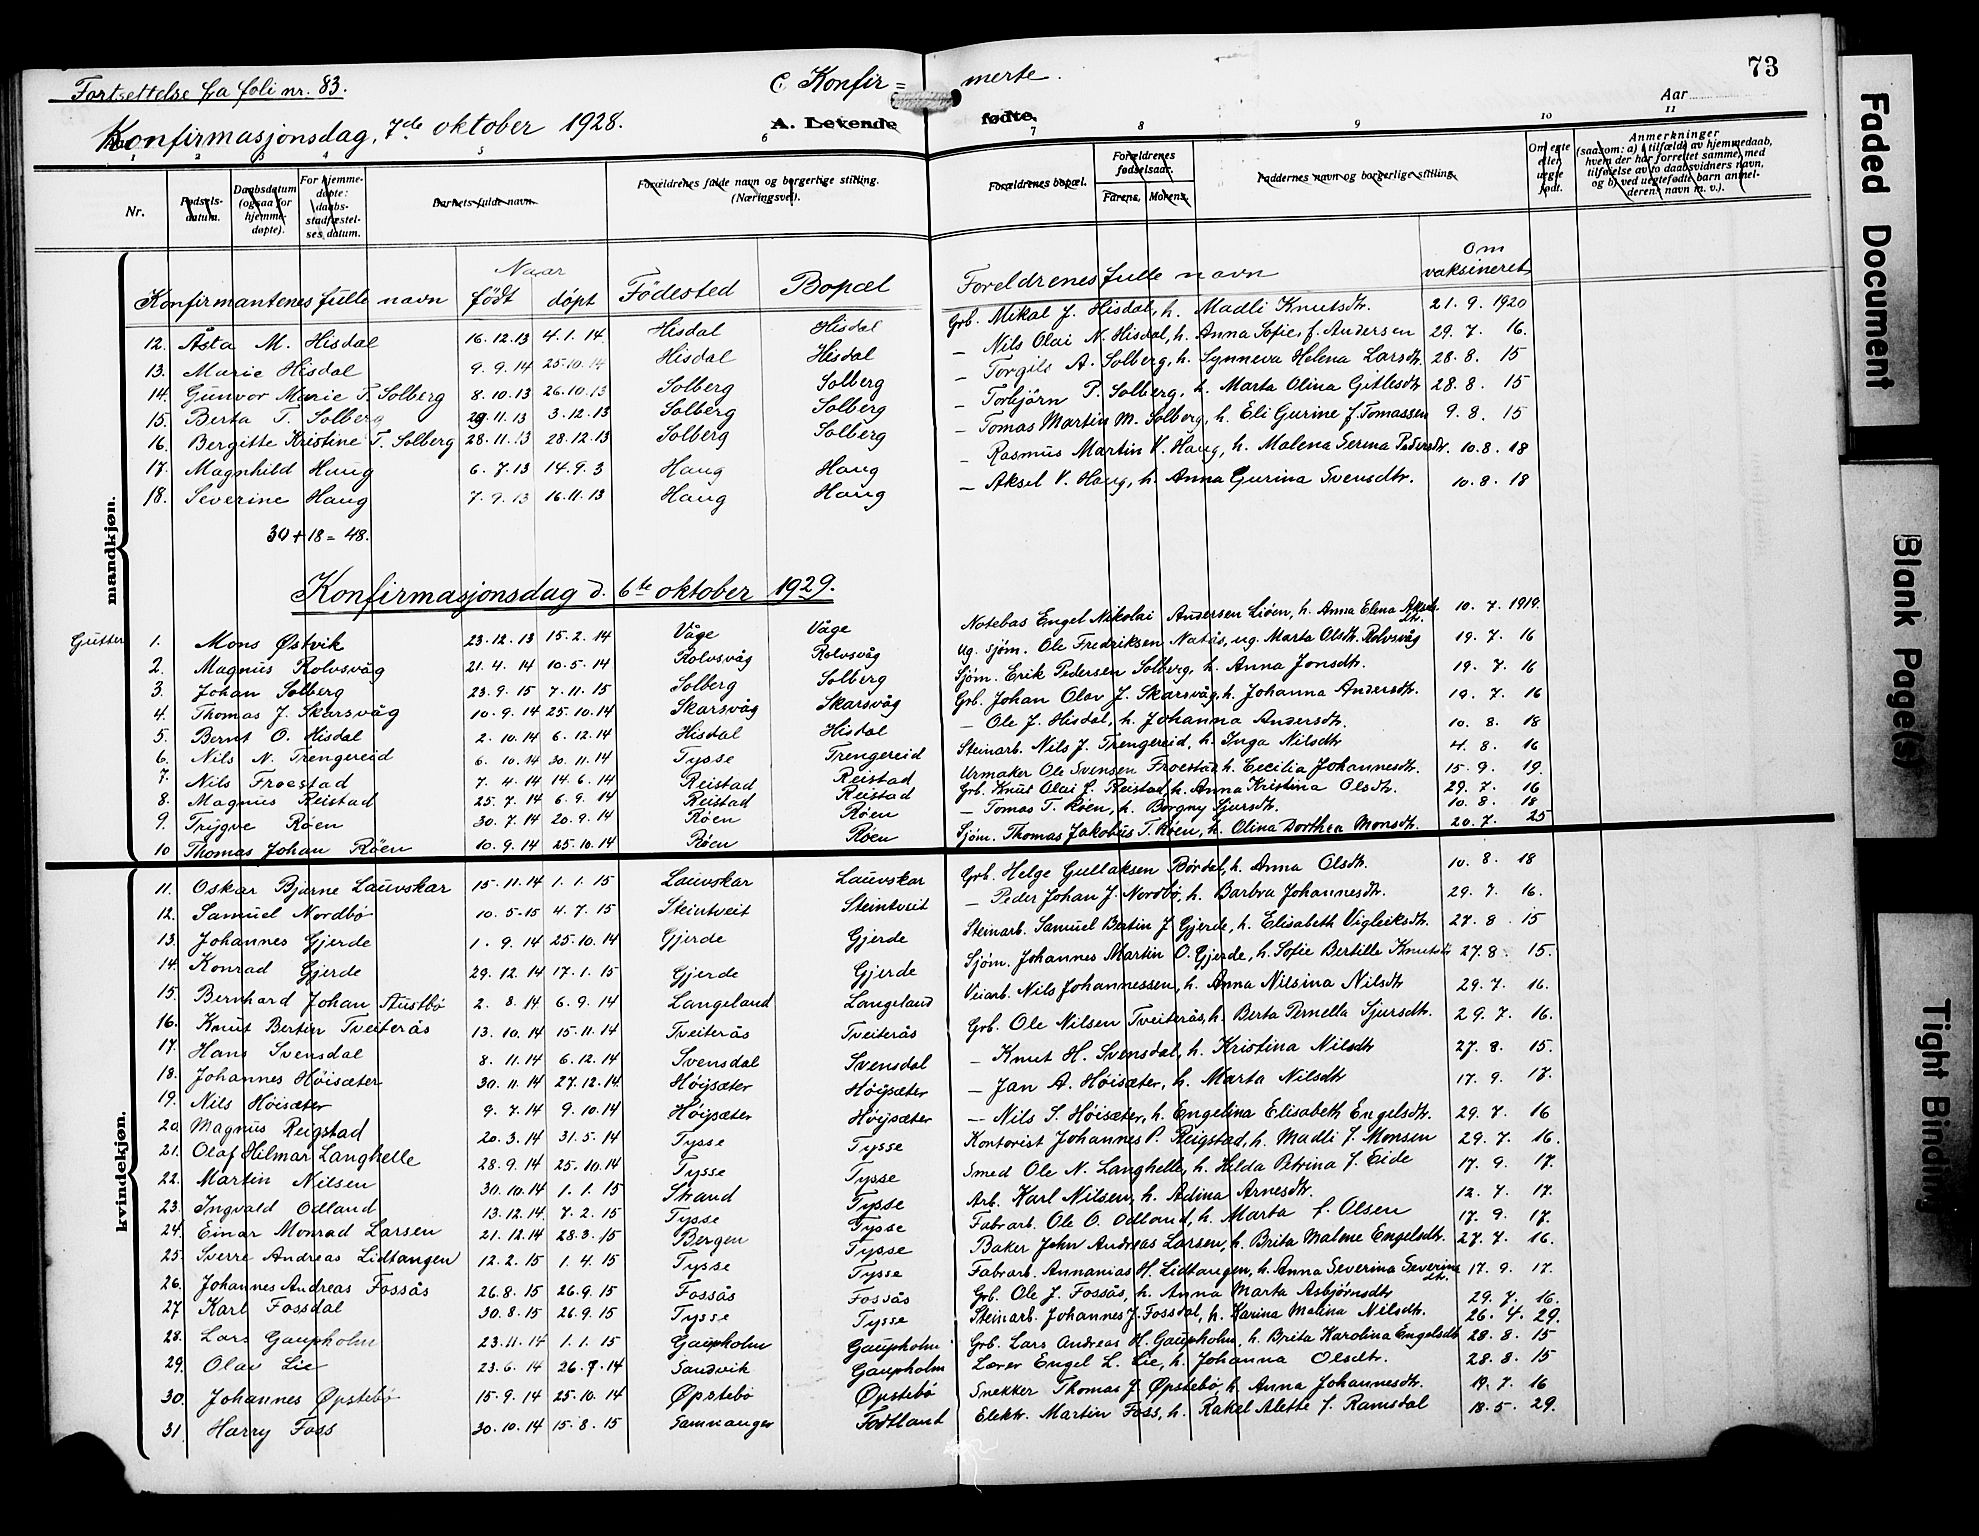 Fortsettelse fra foli nr. 83.
C Konfir = merte.
73
Konfirmasjonsdag, 7de oktober 1928.
A. Levende fødte.
Aar
1 2 3 4 5 6 7 8 9 10 11
Nr.
Fødsels-datum.
Daabsdatum (ogsaa for hjemme-døpte).
For hjemme-døpte: daabs-stadfæstel-ses datum.
Barnets fulde navn.
Forældrenes fulde navn og borgerlige stilling. (Næringsvei).
Forældrenes bopæl.
Forældrenes fødselsaar.
Farens. Morens.
Faddernes navn og borgerlige stilling.
Om egte eller uegte født.
Anmerkninger (saasom: a) i tilfælde av hjemmedaab, hvem der har forrettet samme, med tilføielse av to daabsvidners navn, og b) ved uegtefødte barn anmel-derens navn m. v.).
mandkjøn.
Konfirmantenes fulle navn Naar født døpt Födested Bopæl Foreldrenes fulle navn Om vaksineret
12. Åsta M. Hisdal 16.12.13 4.1.14 Hisdal Hisdal Grb. Mikal J. Hisdal, h. Madli Knutsdtr. 21.9.1920
13. Marie Hisdal 9.9.14 25.10.14 Hisdal Hisdal — Nils Olai N. Hisdal, h. Anna Sofie, f. Andersen 29.7.16.
14. Gunvor Marie T. Solberg 8.10.13 26.10.13 Solberg Solberg — Torgils A. Solberg, h. Synneva Helena Larsdtr. 28.8.15
15. Berta T. Solberg 29.11.13 3.12.13 Solberg Solberg — Torbjörn P. Solberg, h. Marta Olina Gitlesdtr. 28.8.15
16. Bergitte Kristine T. Solberg 28.11.13 28.12.13 Solberg Solberg — Tomas Martin M. Solberg, h. Eli Gurine f. Tomassen 9.8.15
17. Magnhild Haug 6.7.13 14.9.3 Haug Haug — Rasmus Martin V. Haug, h. Malena Serina Pedersdtr. 10.8.18
18. Severine Haug 7.9.13 16.11.13 Haug Haug — Aksel V. Haug, h. Anna Gurina Svensdtr. 10.8.18
30 + 18 = 48.
Konfirmasjonsdag d. 6te oktober 1929.
Gutter 1. Mons Østvik 23.12.13 15.2.14 Våge Våge Notebas Engel Nikolai Andersen Liøen, h. Anna Elena Aksels dtr. 10.7.1919.
2. Magnus Rolvsvåg 21.4.14 10.5.14 Rolvsvåg Rolvsvåg Ug. sjøm. Ole Fredriksen Natås, ug. Marta Olsdtr. Rolvsvåg 19.7.16
3. Johan Solberg 23.9.15 7.11.15 Solberg Solberg Sjøm. Erik Pedersen Solberg, h. Anna Jonsdtr. 19.7.16
4. Thomas J. Skarsvåg 10.9.14 25.10.14 Skarsvåg Skarsvåg Grb. Johan Olav J. Skarsvåg, h. Johanna Andersdtr. 19.7.16
5. Bernt O. Hisdal 2.10.14 6.12.14 Hisdal Hisdal — Ole J. Hisdal, h. Johanna Andersdtr. 10.8.18
6. Nils N. Trengereid 6.10.14 30.11.14 Tysse Trengereid Steinarb. Nils J. Trengereid, h. Inga Nilsdtr 4.8.16
7. Nils Froestad 7.4.14 14.6.14 Reistad Reistad Urmaker Ole Svensen Froestad h. Cecilia Johannesdtr. 15.9.19.
8. Magnus Reistad 25.7.14 6.9.14 Reistad Reistad Grb. Knut Olai J. Reistad, h. Anna Kristina Olsdtr. 29.7.16
9. Trygve Røen 30.7.14 20.9.14 Røen Røen — Tomas T. Røen, h. Borgny Sjursdtr. 10.8.18
10 Thomas Johan Røen 10.9.14 25.10.14 Røen Røen Sjøm. Thomas Jakobus T. Røen, h. Olina Dorthea Monsdtr. 20.7.25
kvindekjøn.
11. Oskar Bjarne Lauvskar 15.11.14 1.1.15 Lauvskar Lauvskar Grb. Helge Gullaksen Børdal, h. Anna Olsdtr. 10.8.18
12. Samuel Nordbø 10.5-15 4.7.15 Steintveit Steintveit — Peder Johan J. Nordbø, h. Barbra Johannesdtr. 29.7.16.
13. Johannes Gjerde 1.9.14 25.10.14 Gjerde Gjerde Steinarb. Samuel Bertin J Gjerde, h. Elisabeth Vigleiksdtr. 27.8.15
14. Konrad Gjerde 29.12.14 17.1.15 Gjerde Gjerde Sjøm. Johannes Martin O. Gjerde, h. Sofie Bertille Knutsdtr 27.8.15.
15. Bernhard Johan Austbø 2.8.14 6.9.14 Langeland Langeland Veiarb. Nils Johannessen, h. Anna Nilsina Nilsdtr 29.7.16.
16. Knut Bertin Tveiterås 13.10.14 15.11.14 Tveiterås Tveiterås Grb. Ole Nilsen Tveiterås, h. Berta Pernella Sjursdtr. 29.7.16.
17. Hans Svensdal 8.11.14 6.12.14 Svensdal Svensdal — Knut H. Svensdal, h. Kristina Nilsdtr 27.8.15.
18. Johannes Höisæter 30.11.14 27.12.14 Höysæter Höysæter — Jan A. Höisæter, h. Marta Nilsdtr 17.9.17.
19. Nils Höisæter 9.7.14 9.10.14 Höysæter Höysæter — Nils S. Höisæter, h. Engelina Elisabeth Engelsdtr. 29.7.16
20. Magnus Reigstad 20.3.14 31.5.14 Tysse Tysse Kontorist Johannes P. Reigstad, h. Madli f. Monsen 29.7.16.
21. Olaf Hilmar Langhelle 28.9.14 25.10.14 Tysse Tysse Smed Ole N. Langhelle, h. Hilda Petrina f. Eide 17.9.17.
22. Martin Nilsen 30.10.14 1.1.15 Strand Tysse Arb. Karl Nilsen, h. Adina Arnesdtr. 12.7.17.
23. Ingvald Odland 13.12.14 7.2.15 Tysse Tysse Fabrarb. Ole O. Odland, h. Marta f. Olsen 17.9.17.
24. Einar Monrad Larsen 21.12.14 28.3.15 Bergen Tysse Baker John Andreas Larsen, h. Brita Malene Engelsdtr. 27.7.16.
25. Sverre Andreas Lidtangen 12.2.15 1.4.15 Tysse Tysse Fabrarb. Annanias H. Lidtangen, h. Anna Severina Severins dtr. 17.9.17.
26. Johannes Andreas Fossås 26.8.15 26.9.15 Fossås Fossås Grb. Ole J. Fossås, h. Anna Marta Asbjørnsdtr 29.7.16.
27 Karl Fossdal 30.8.15 26.9.15 Tysse Tysse Steinarb. Johannes J. Fossdal, h. Karina Malina Nilsdtr. 26.4.29.
28. Lars Gaupholm 23.11.14 1.1.15 Gaupholm Gaupholm Grb. Lars Andreas H. Gaupholm, h. Brita Karolina Engelsdtr 28.8.15
29. Olav Lie 23.6.14 26.7.14 Sandvik Gaupholm Lærer Engel L. Lie, h. Johanna Olsdtr. 28.8.15
30. Johannes Øpstebø 15.9.14 25.10.14 Øpstebø Øpstebø Snekker Thomas J. Øpstebø, h. Anna Johannesdtr. 19.7.16
31. Harry Foss 30.10.14 15.8.15 Samnanger Totland Elektr. Martin Foss, h. Rakel Alette f. Ramsdal 18.5.29.
Faded Document
Blank Page(s)
Tight Binding